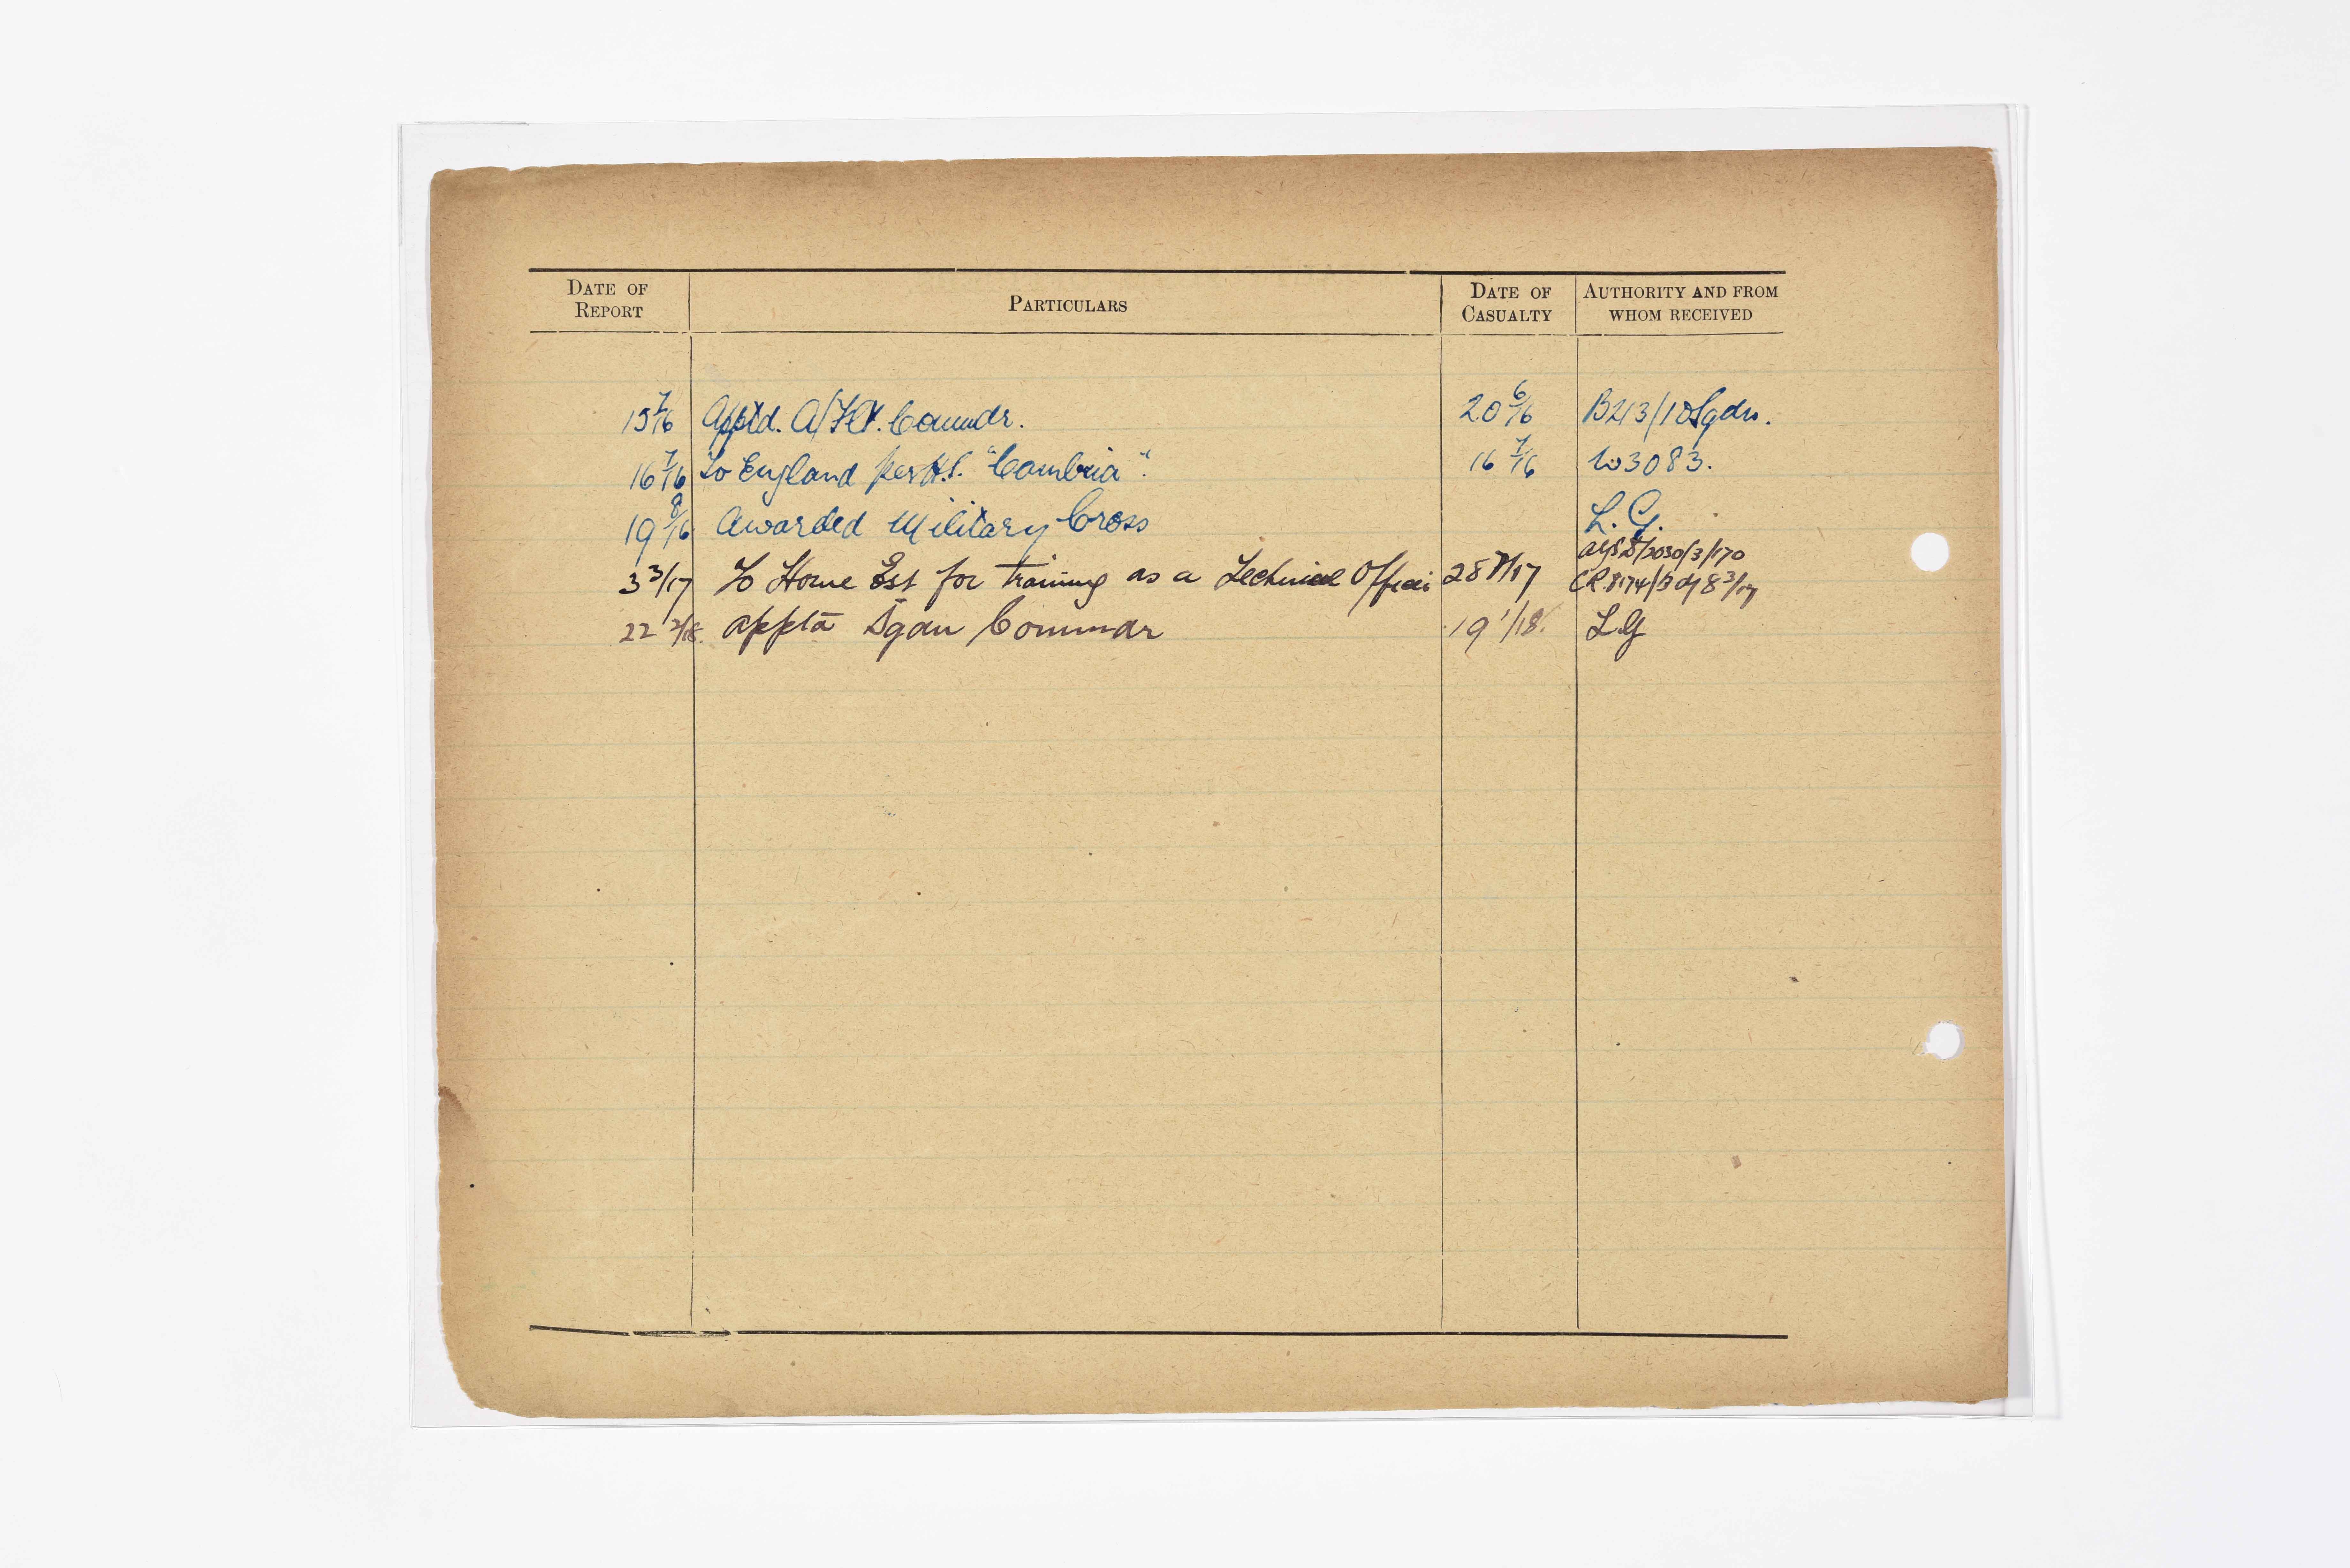 DATE OF REPORT PARTICULARS DATE OF CASUALTY AUTHORITY AND FROM WHOM RECEIVED
15 7/16 Apptd. A/Flt. Commdr. 20 6/16 B213/10 Sqdn.
16 7/16 To England per H.S. "Cambria". 16 7/16 W3083.
19 8/16 Awarded Military Cross L.G.
3 3/17 To Home Est for training as a Technical Officer 28 2/17 D/2030/3/170
CR 8174/ 8 3/17
22 2/18. apptd Sqdn Commdr 19 1/18. LG